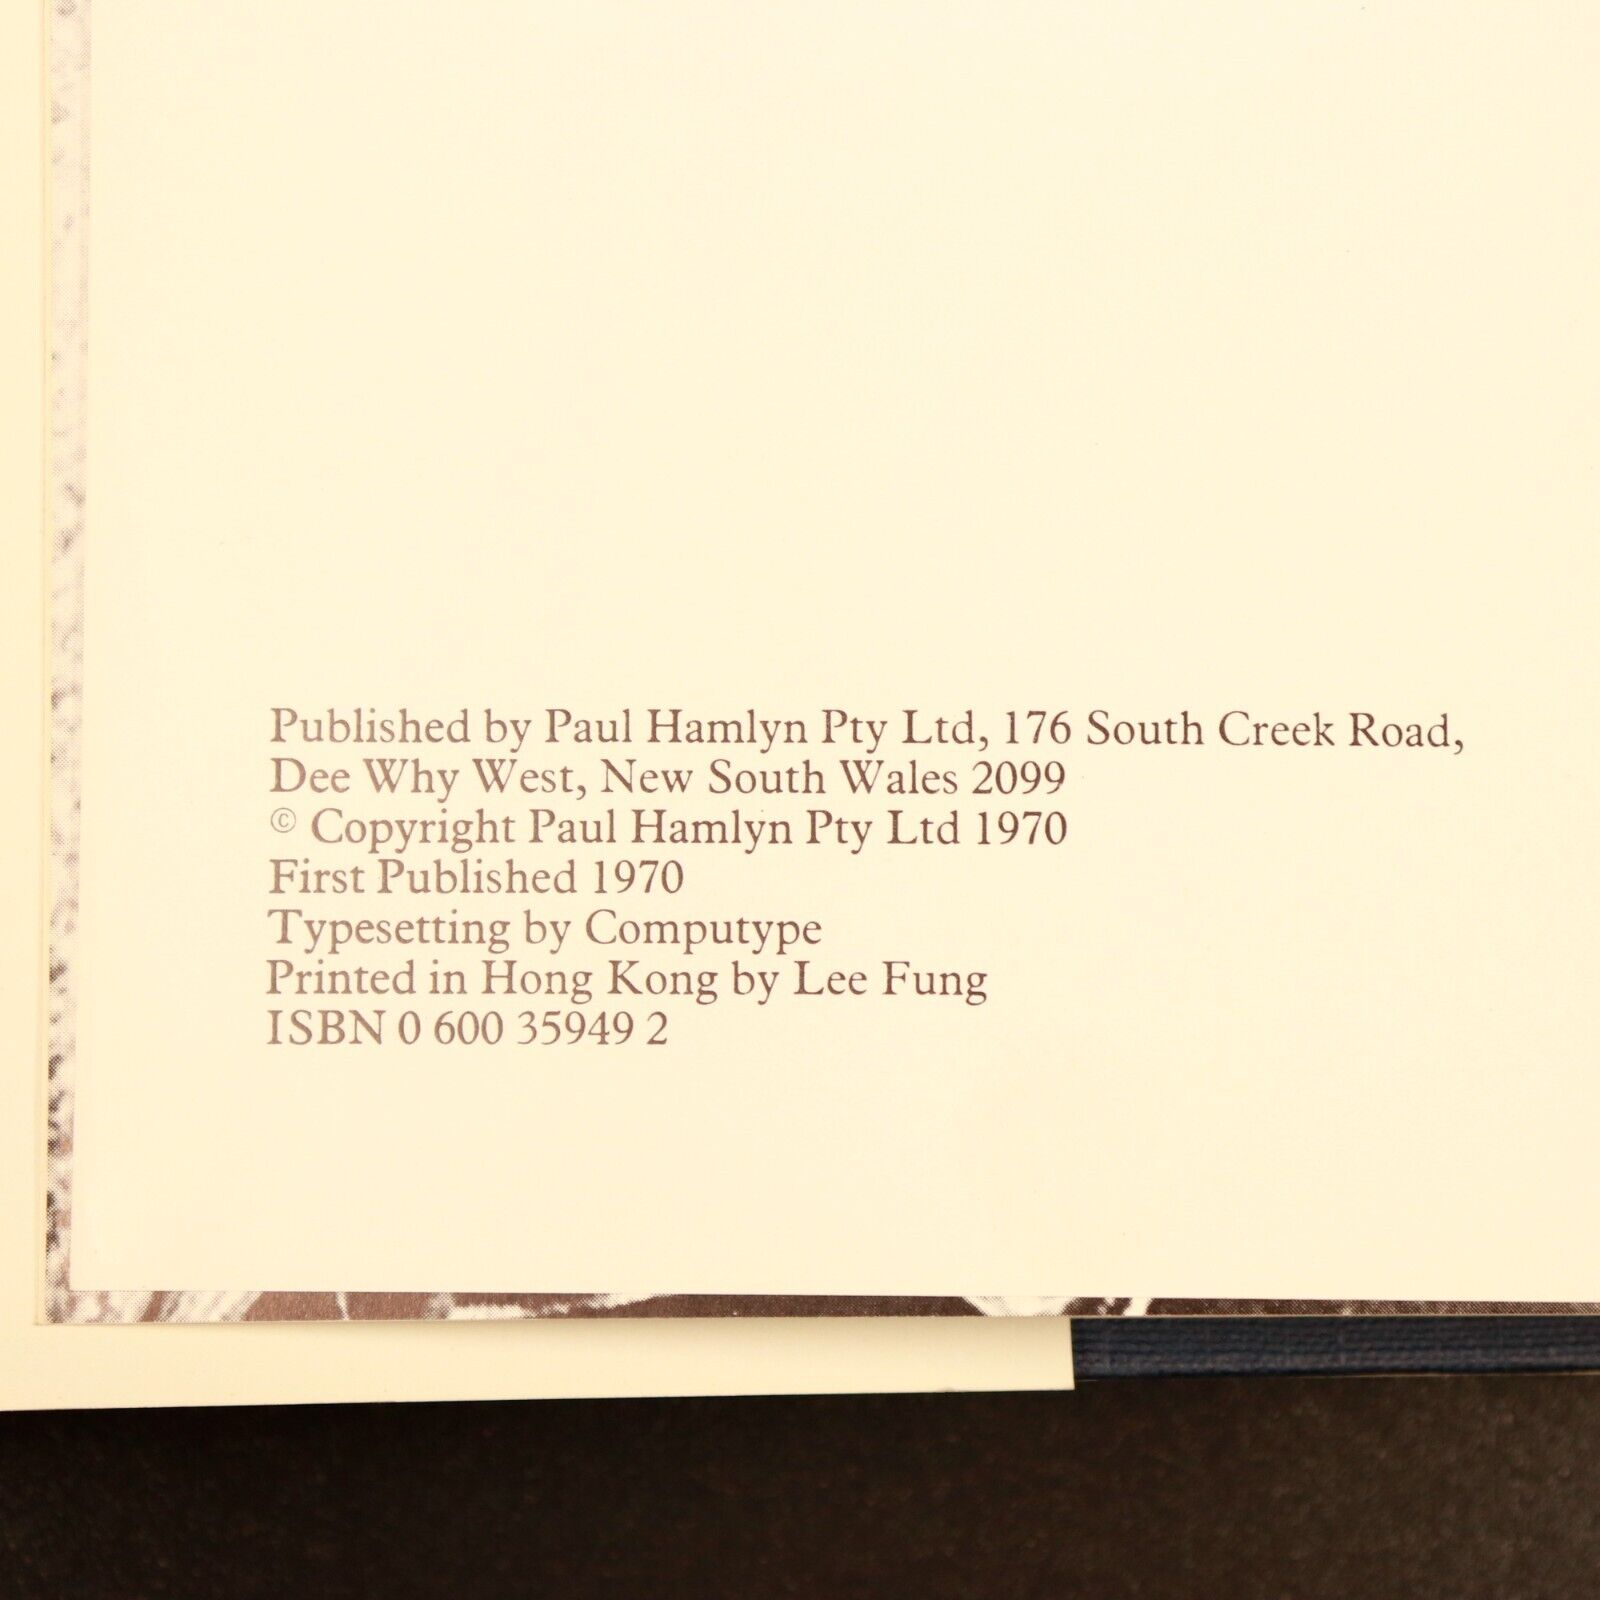 Published by Paul Hamlyn Pty Ltd, 176 South Creek Road,
Dee Why West, New South Wales 2099
© Copyright Paul Hamlyn Pty Ltd 1970
First Published 1970
Typesetting by Computype
Printed in Hong Kong by Lee Fung
ISBN 0 600 35949 2